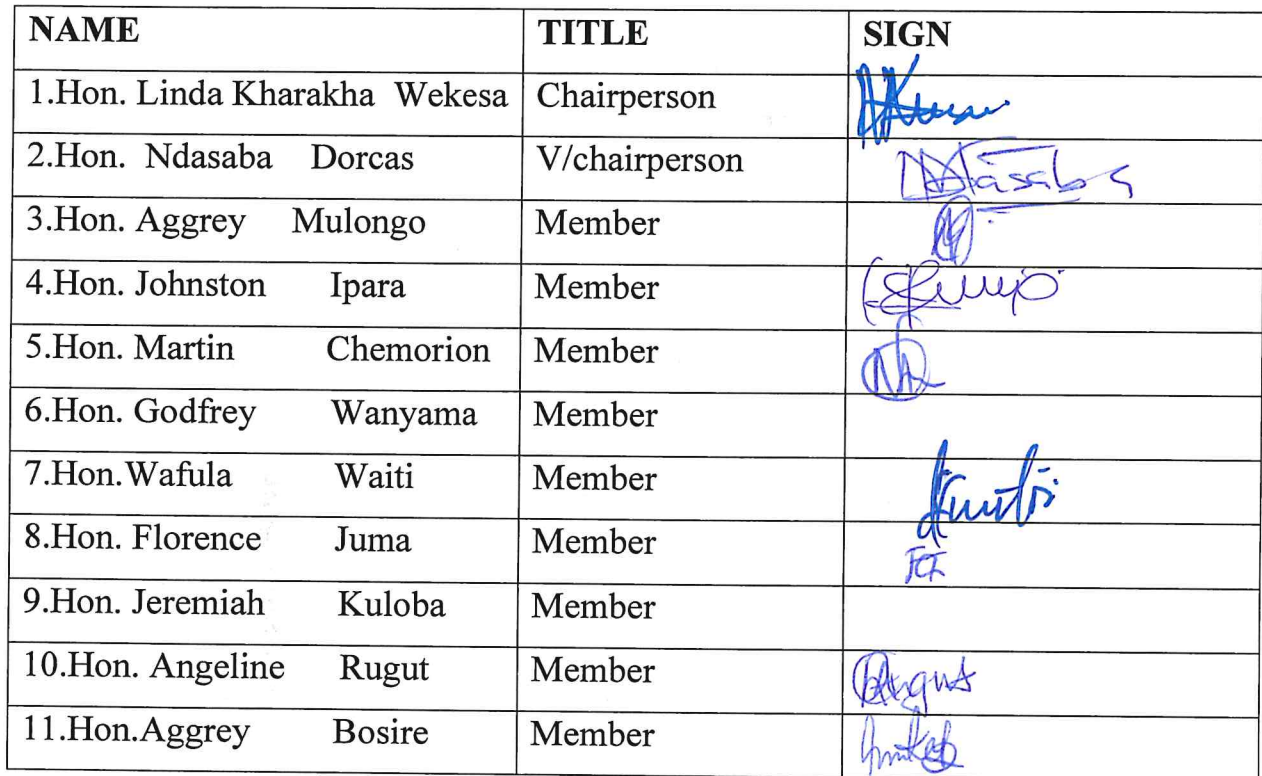 NAME TITLE SIGN
1.Hon. Linda Kharakha Wekesa Chairperson
2.Hon. Ndasaba Dorcas V/chairperson Ndasaba
3.Hon. Aggrey Mulongo Member
4.Hon. Johnston Ipara Member
5.Hon. Martin Chemorion Member
6.Hon. Godfrey Wanyama Member
7.Hon.Wafula Waiti Member
8.Hon. Florence Juma Member
9.Hon. Jeremiah Kuloba Member
10.Hon. Angeline Rugut Member
11.Hon.Aggrey Bosire Member